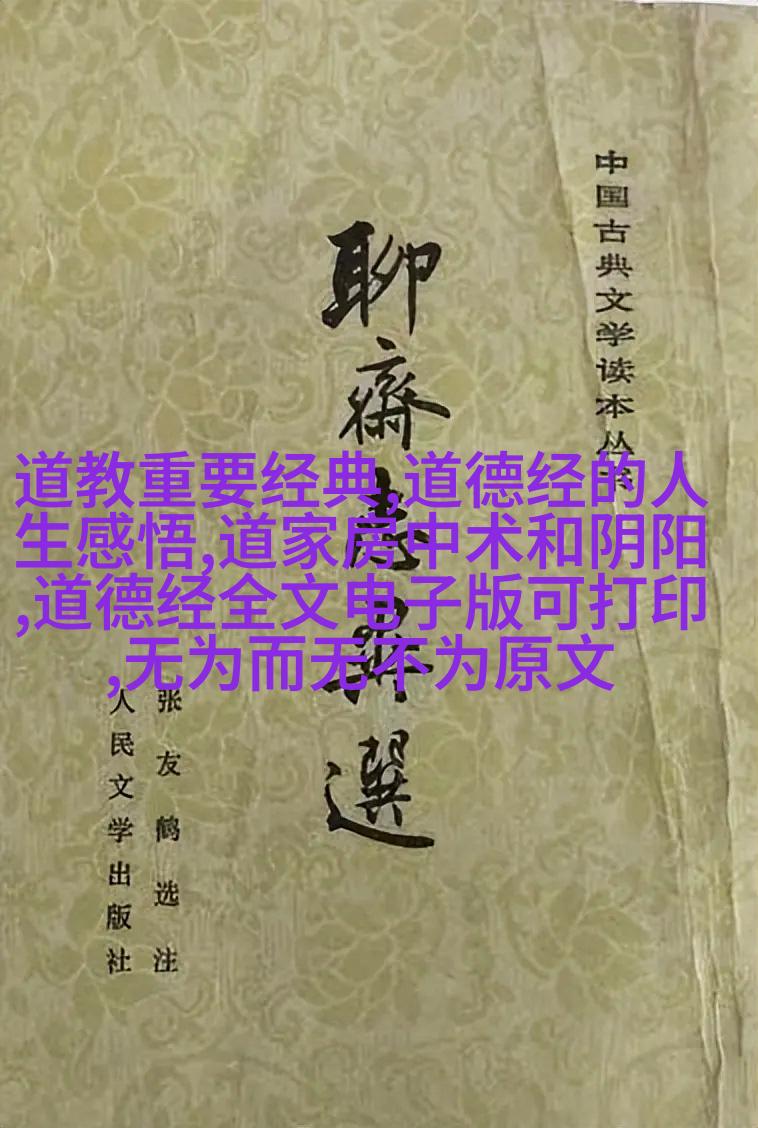 中国古典文学读本丛书
聊齋 選
张友鹤选注
人民文学出版社
道教重要经典,道德经的人
生感悟,道家房中术和阴阳
,道德经全文电子版可打印
,无为而无不为原文